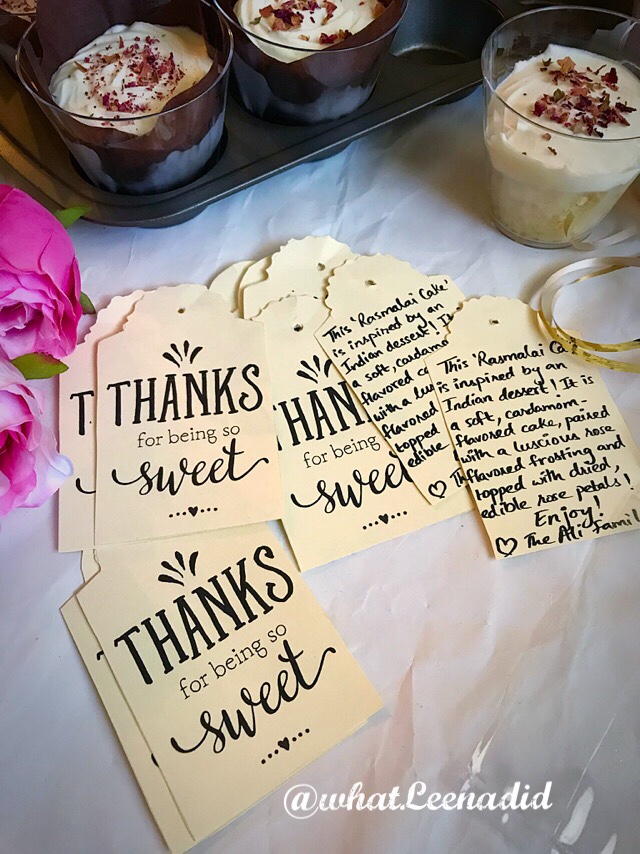 THANKS
for being so
sweet
T
THAN
for being
sweet
This 'Rasmalai Cake'
is inspired by an
Indian dessert! It
a soft, cardamo
flavored
with a
flavored
topped
edible
This 'Rasmalai Ca
is inspired by an
Indian dessert! It is
a soft, cardamom-
flavored cake, paired
with a luscious rose
flavored frosting and
topped with dried,
edible rose petals!
Enjoy!
♡ The Ali Famil
THANKS
for being so
sweet
@what.Leenadid